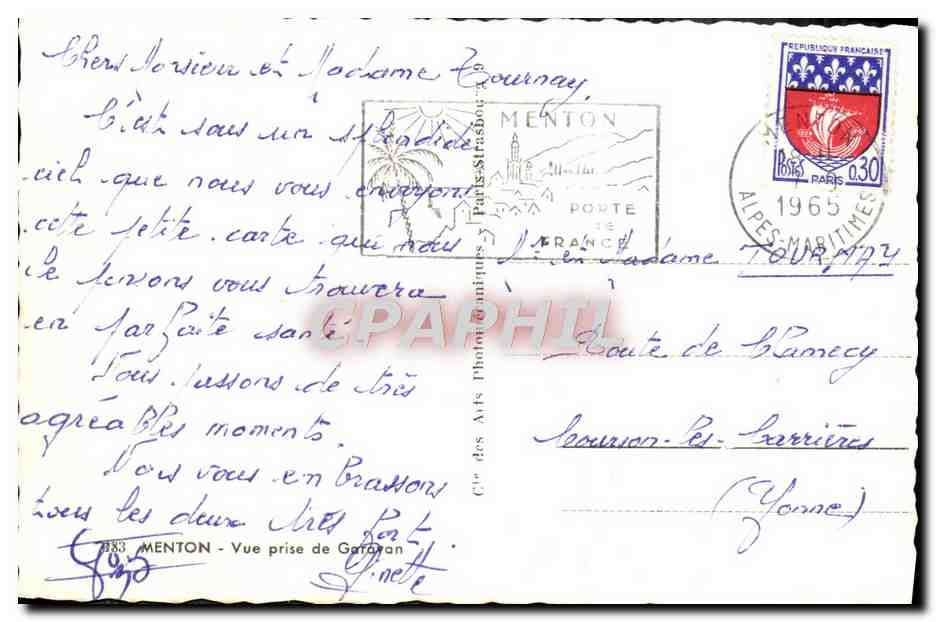 Chers Monsieur et Madame Tournay,
C'est sous un splendide
ciel que nous vous envoyons
cette petite carte qui nous
le pensons vous trouvera
en parfaite santé
Nous passons de très
agréables moments.
Nous vous en brassons
tous les deux très fort
Ginette
183 MENTON - Vue prise de Garavan
Cie des Arts Photomécaniques - Paris-Strasbourg
MENTON
PORTE
DE
FRANCE
REPUBLIQUE FRANÇAISE
POSTES
0,30
PARIS
1965
ALPES-MARITIMES
Mr et Madame TOURNAY
Route de Clamecy
Courson-les-Carrières
(Yonne)
CPAPHIL